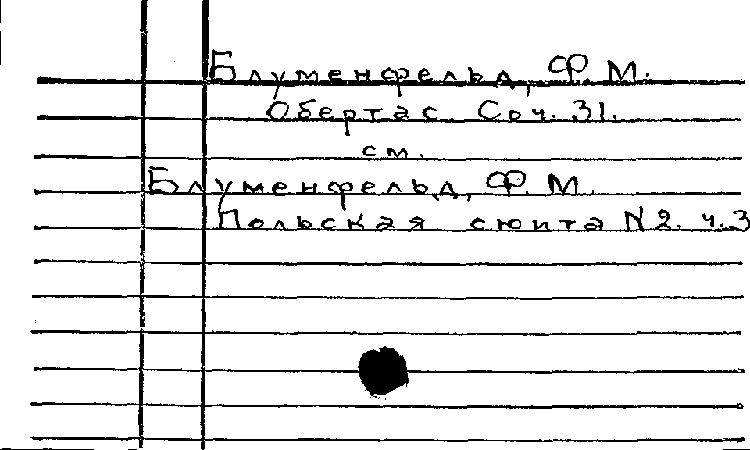 Блуменфельд, Ф. М.
Обертас Соч. 31.
см.
Блуменфельд, Ф. М.
Польская сюита N 2. ч. 3